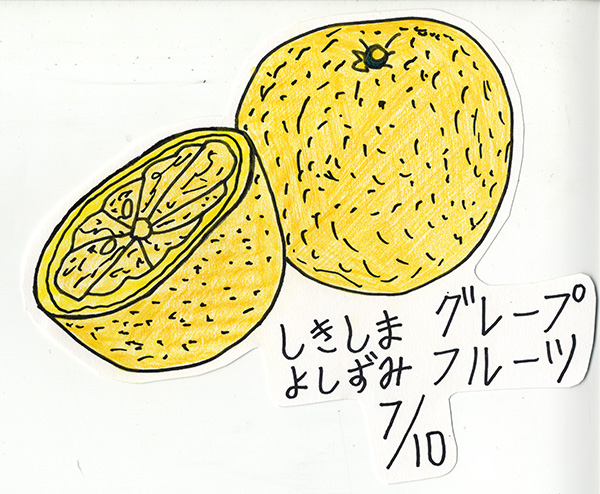 しきしま グレープ
よしずみ フルーツ
7/10